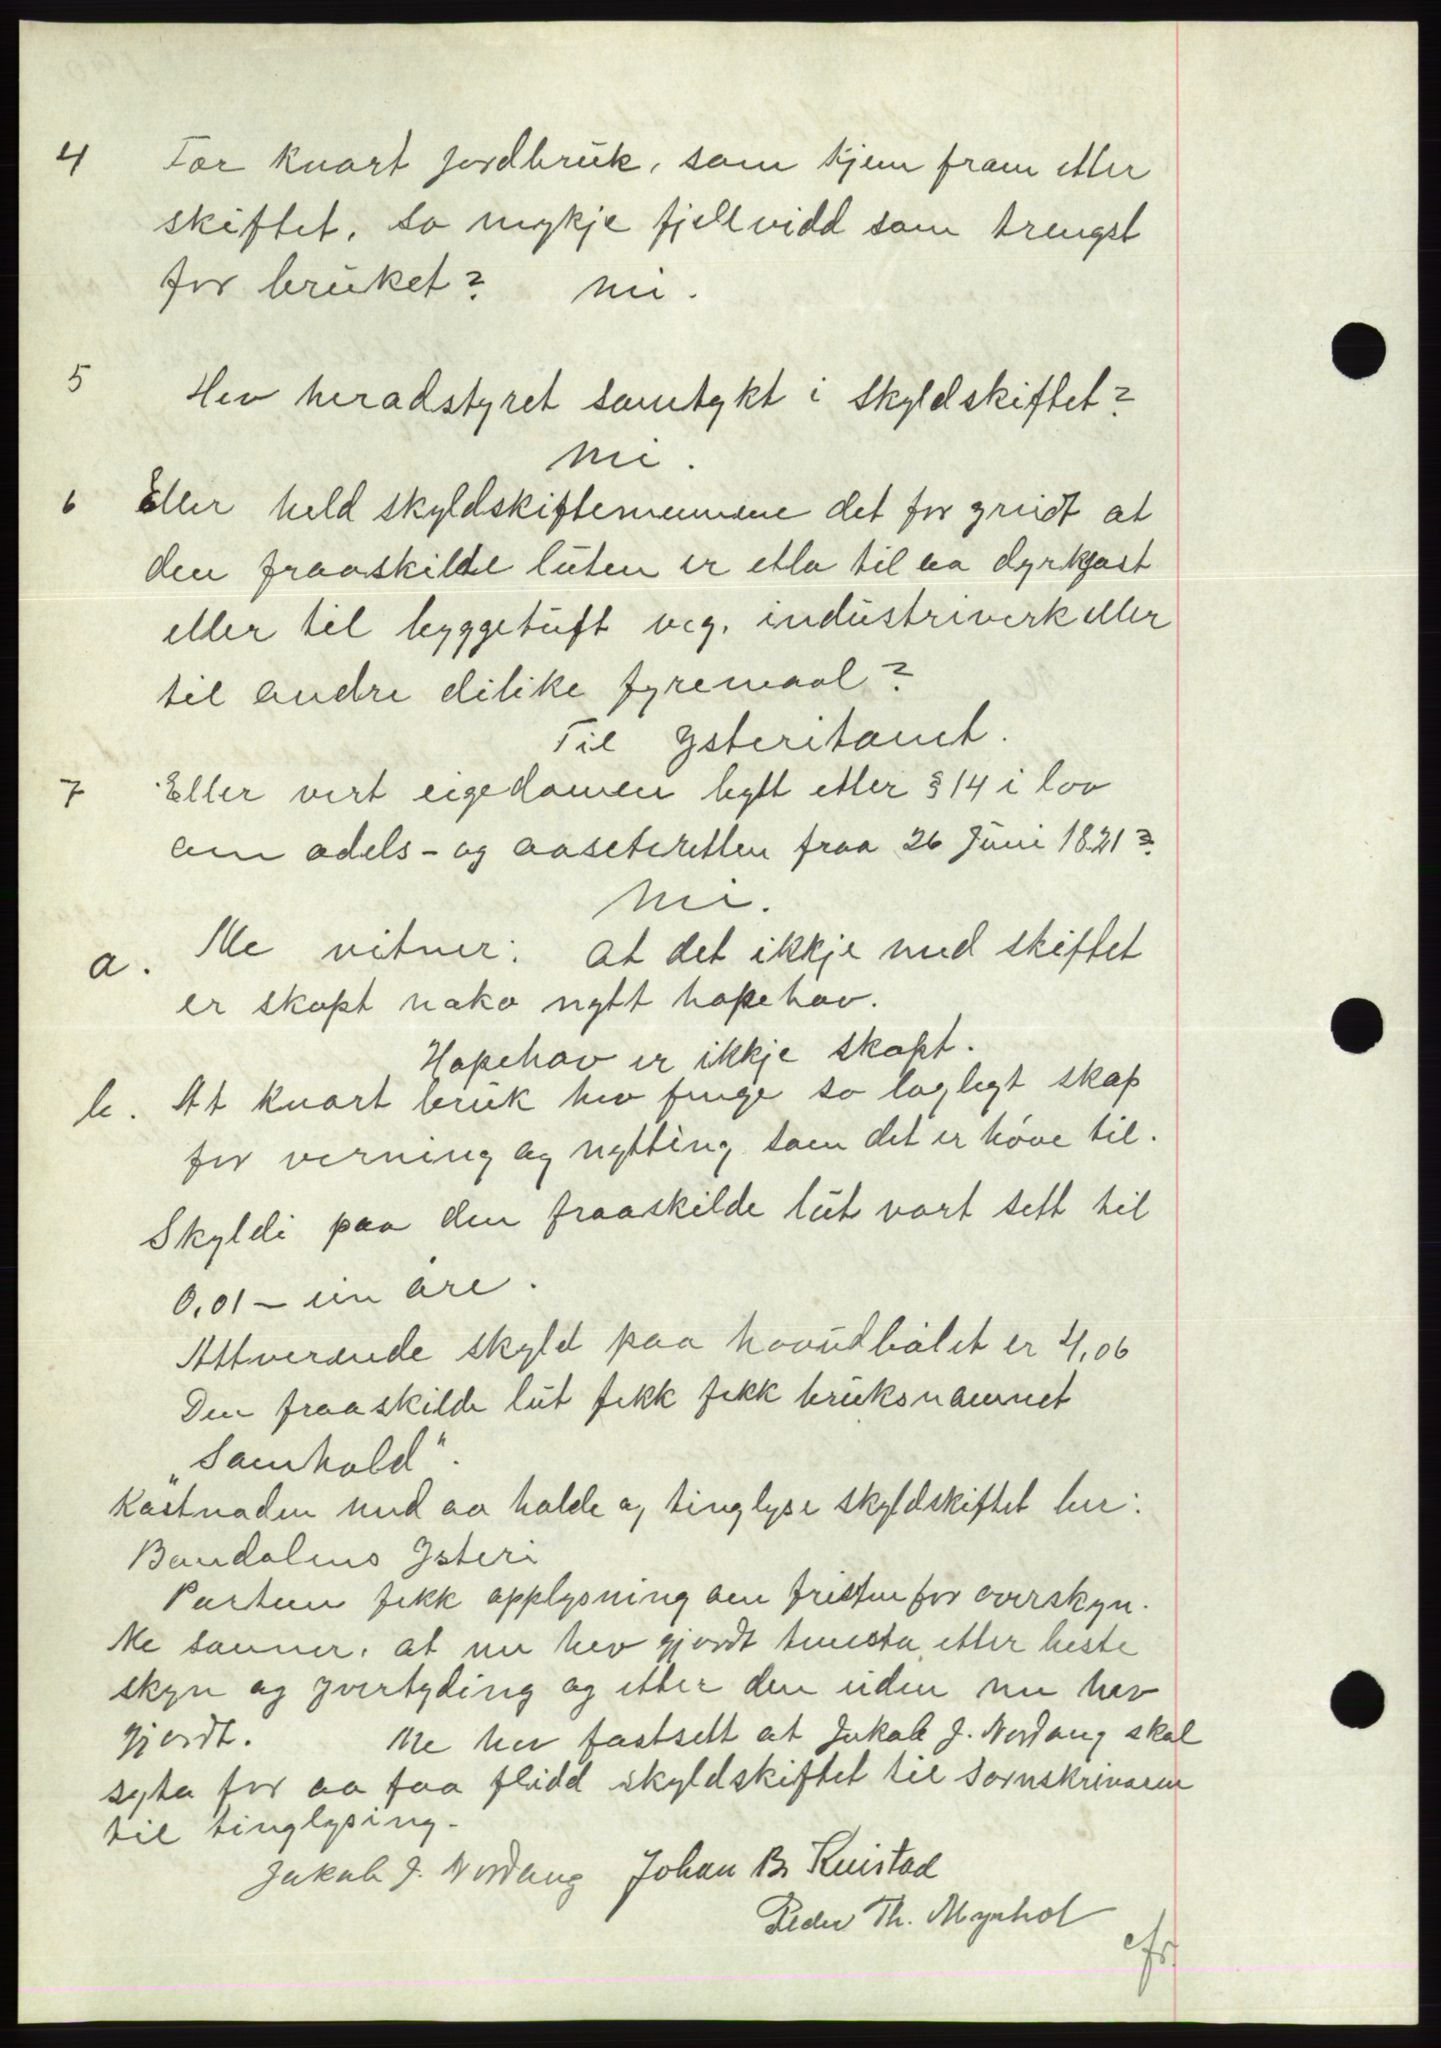 4 Fær kvart jordbruk, som kjem fram etter
skiftet, so mykje fjellvidd som trengst
for bruket? nei.
5 Hev heradstyret samtykt i skyldskiftet?
nei.
6 Eller held skyldskiftemennene det for greidt at
den fraaskilde luten er etla til aa dyrkjast
eller til byggetuft veg, industriverk eller
til andre dilike fyremaal?
Til Ysteritomt.
7 Eller vert eigedomen bytt etter § 14 i lov
om odels- og aaseteretten fraa 26 Juni 1821?
nei.
a. Me vitner: at det ikkje med skiftet
er skapt noko nytt hopehav.
Hopehav er ikkje skapt.
b. At kvart bruk hev fenge so laglegt skap
for verning og nytting som det er høve til.
Skyldi paa den fraaskilde lut vart sett til
0,01 – ein øre.
Attverande skyld paa hovudbølet er 4,06
Den fraaskilde lut fekk fekk bruksnamnet
„Samhold".
Kostnaden med aa halde og tinglyse skyldskiftet ber:
Bondalens Ysteri
Partem fekk upplysning om fristen for overskyn.
Me sanner, at me hev gjordt tenesta etter beste
skyn og yvertyding og etter den eiden me hev
gjordt. Me hev fastsett at Jakob J. Nordang skal
syta for aa faa flidd skyldskiftet til Sornskrivaren
til tinglysing.
Jakob J. Nordang Johan B. Kvistad
Peder Th. Myrhol